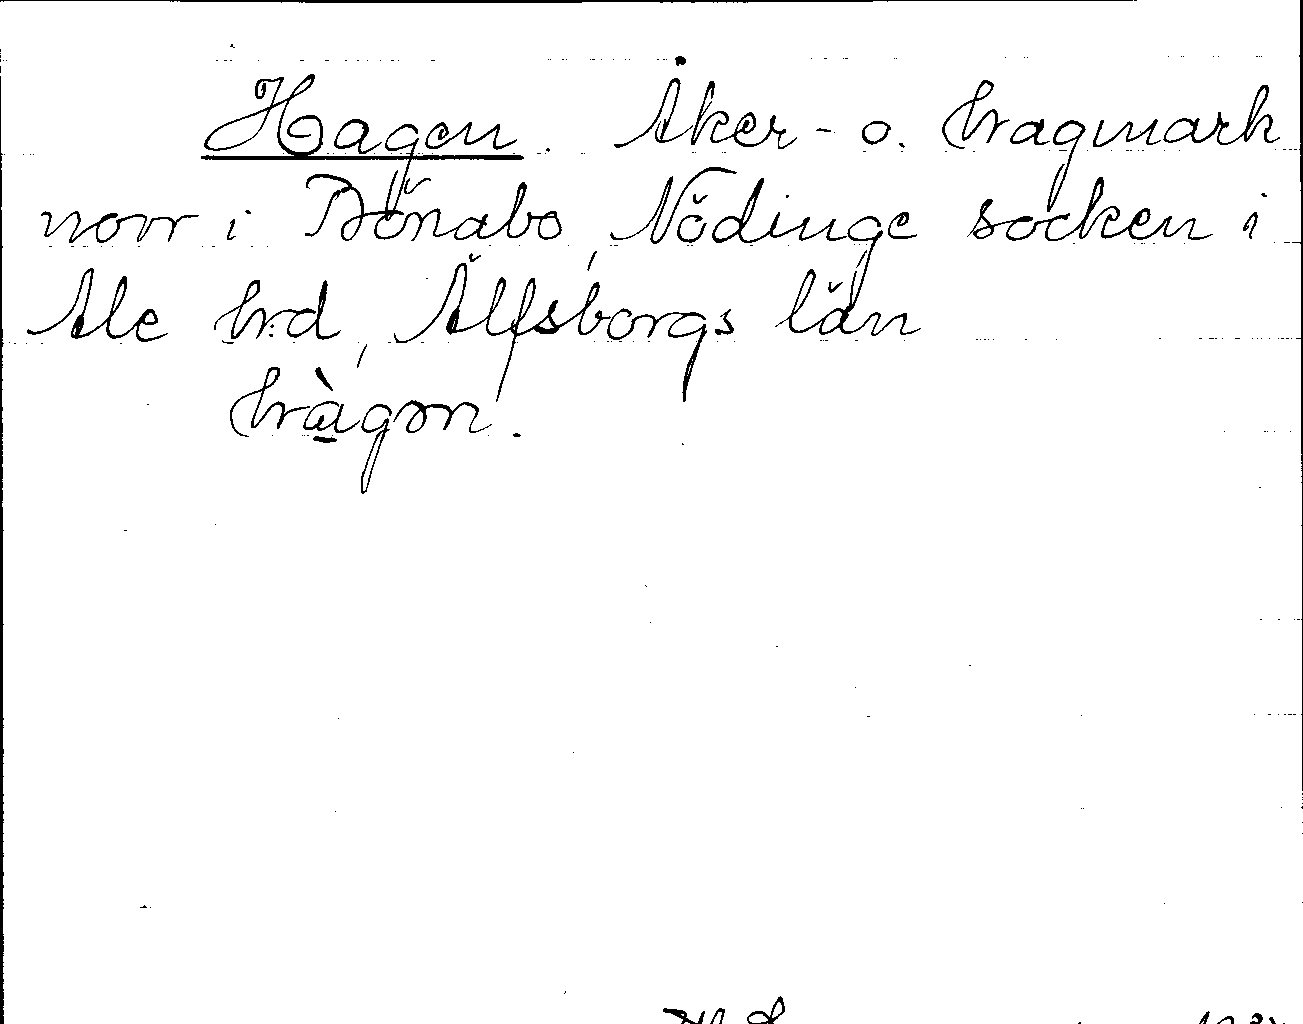 Hagen. Åker- o. hagmark
norr i Bönabo, Nödinge socken i
Ale hrd, Älfsborgs län
hàgɘn.